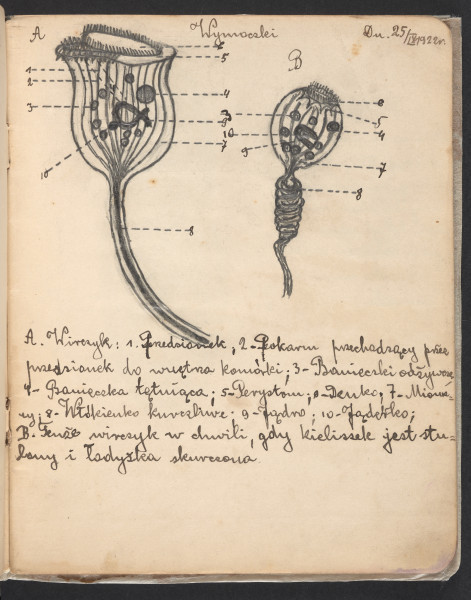 A Wymoczki Dn. 25/IV 1922 r.
B
6
5
1
2
3
4
9
7
10
8
6
3
5
10
4
9
7
8
A. Wirczyk: 1. Przedsionek, 2-Pokarm przechodzący przez
przedsionek do wnętrza komórki; 3-Banieczki odżywcze,
4-Banieczka tętniąca; 5-Perystom; 6-Denko; 7-Mione-
my; 8-Włókienko kurczliwe. 9-Jądro; 10-Jąderko;
B. Tenże wirczyk w chwili, gdy kieliszek jest stu-
lony i łodyżka skurczona.